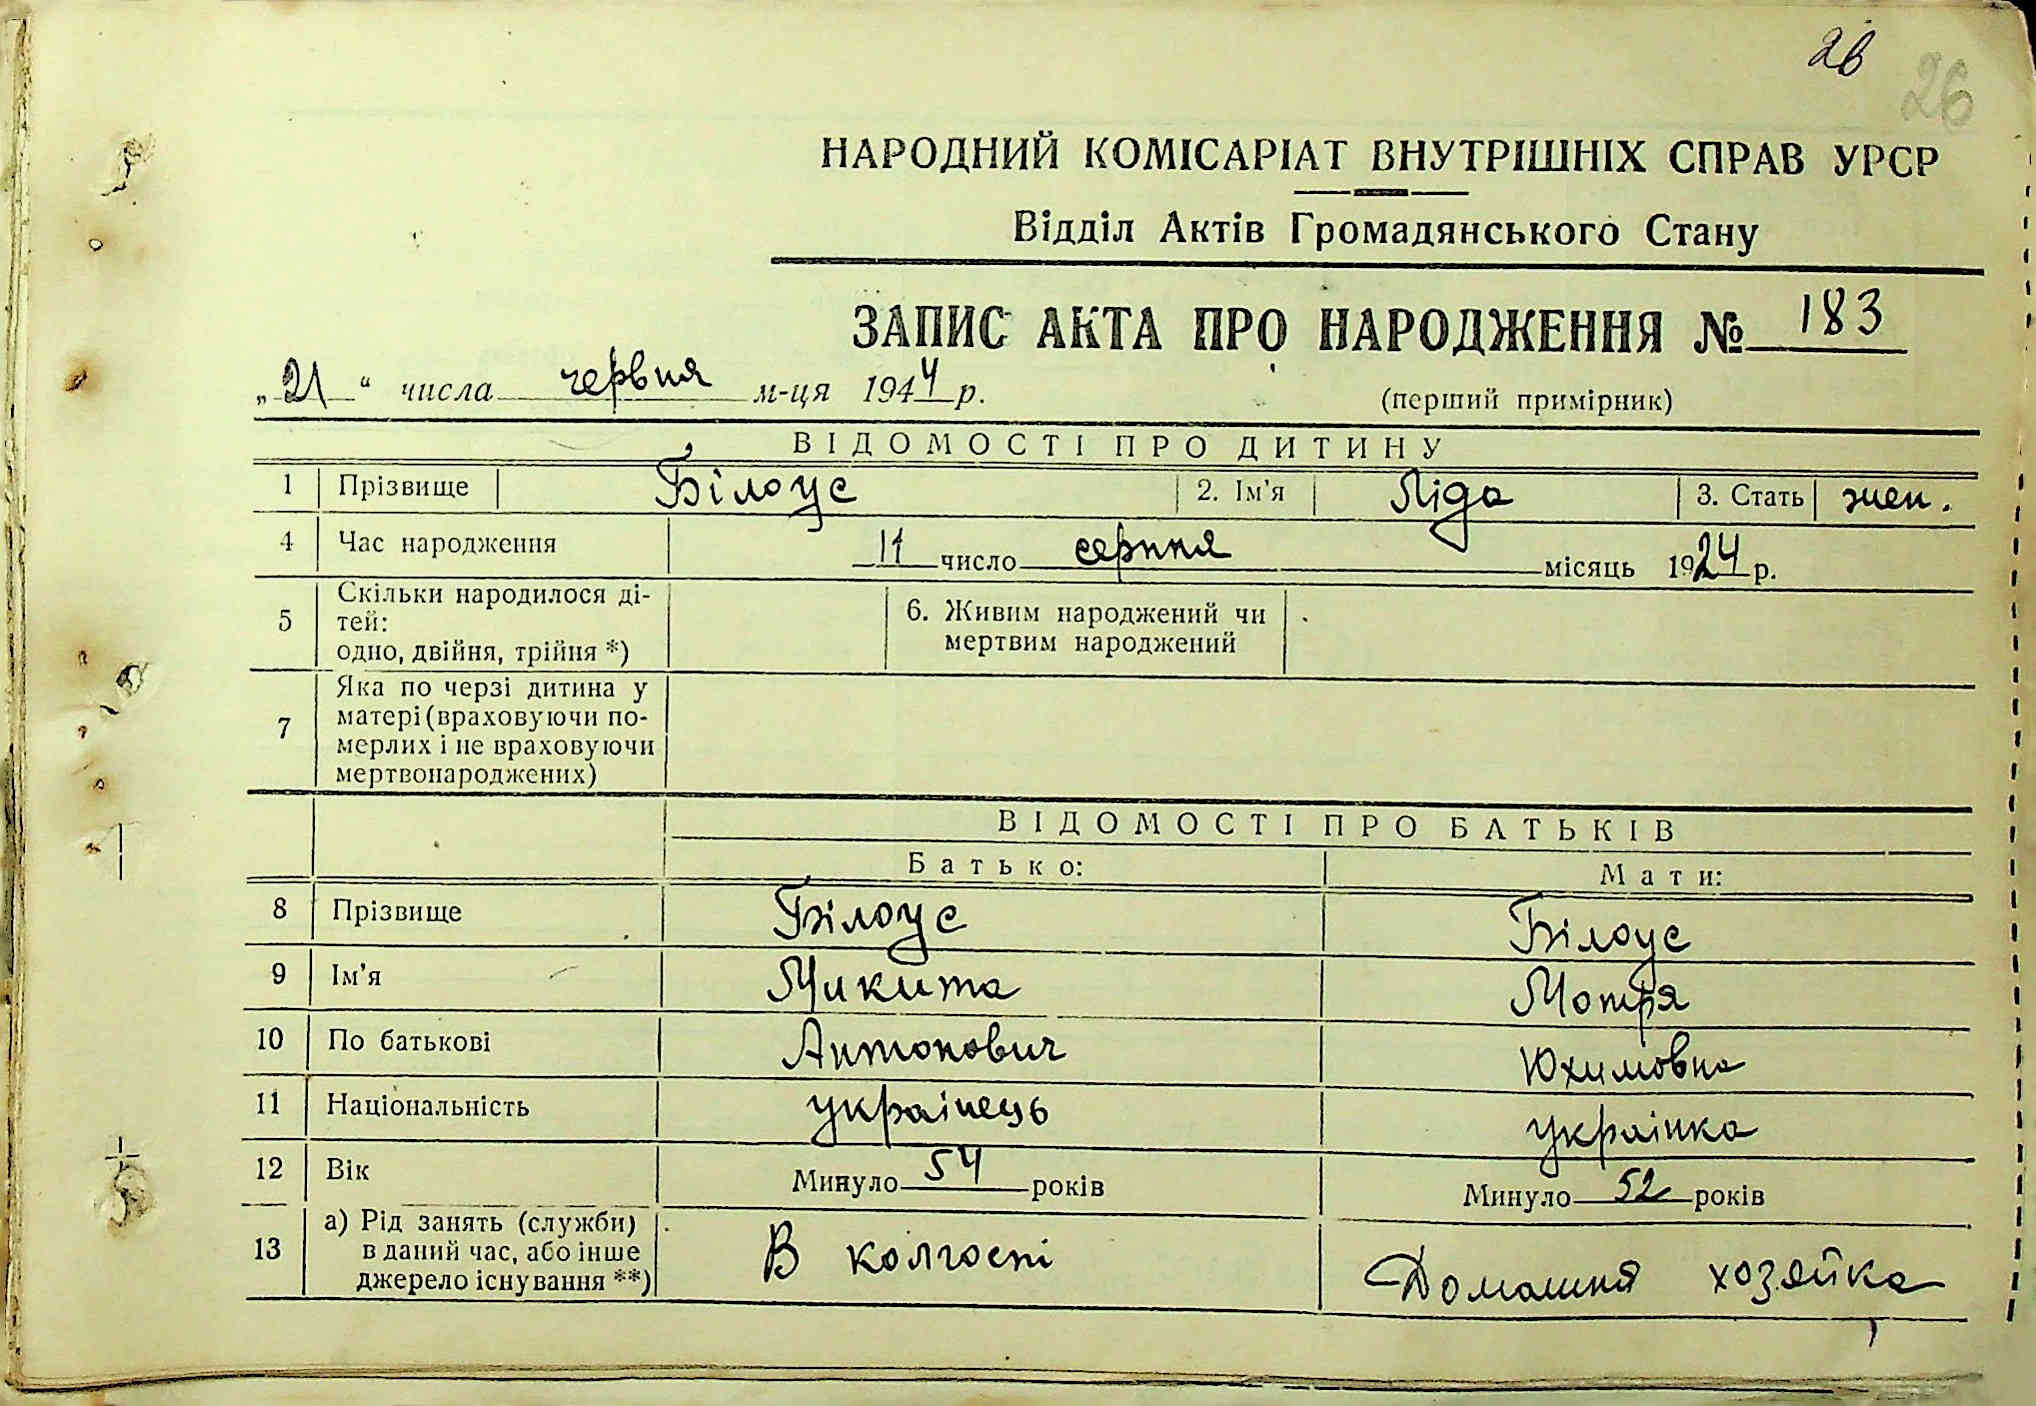 26
26
НАРОДНИЙ КОМІСАРІАТ ВНУТРІШНІХ СПРАВ УРСР
Відділ Актів Громадянського Стану
ЗАПИС АКТА ПРО НАРОДЖЕННЯ № 183
„21“ числа червня м-ця 1944 р.
(перший примірник)
ВІДОМОСТІ ПРО ДИТИНУ
1 Прізвище Білоус 2. Ім'я Ліда 3. Стать жен.
4 Час народження 11 число серпня місяць 1924 р.
5 Скільки народилося ді-
тей:
одно, двійня, трійня *)
6. Живим народжений чи
мертвим народжений
7 Яка по черзі дитина у
матері (враховуючи по-
мерлих і не враховуючи
мертвонароджених)
ВІДОМОСТІ ПРО БАТЬКІВ
Батько: Мати:
8 Прізвище Білоус Білоус
9 Ім'я Микита Мотря
10 По батькові Антонович Юхимовна
11 Національність українець українка
12 Вік Минуло 54 років Минуло 52 років
13 а) Рід занять (служби)
в даний час, або інше
джерело існування **)
В колгоспі Домашня хозяйка